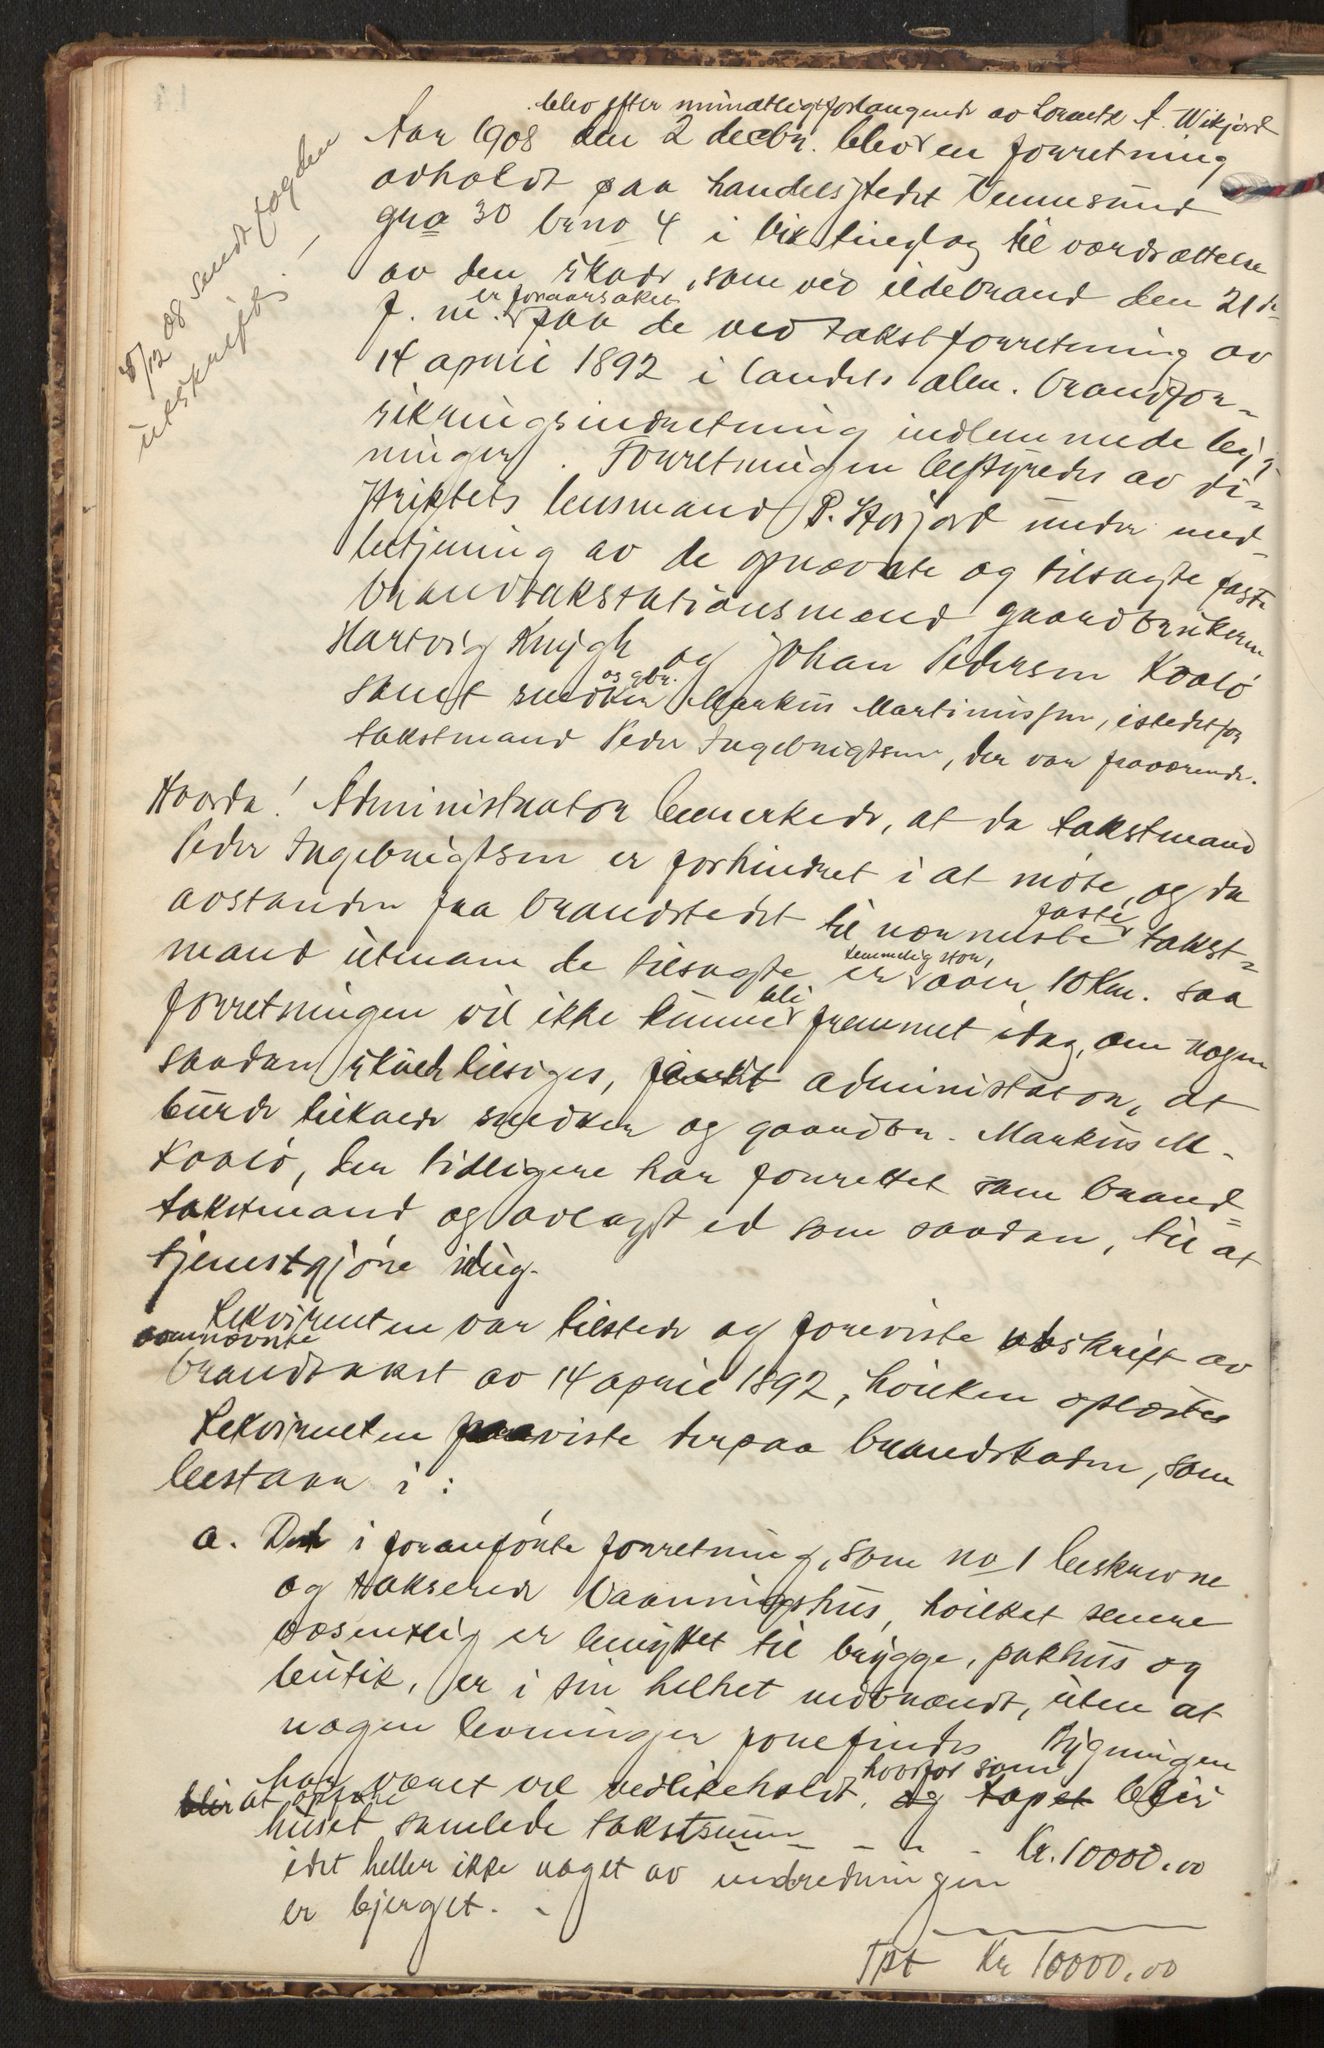 8/12 08 sendt fogden
utskrift. /
blev efter mundtligt forlangende av Lornetz A. Wikjord
Aar 1908 den 2 decbr. blev en forretning
avholdt paa handelsstedet Vennesund
gno 30 brno 4 i Vik tinglag til værdsættelse
av den skade, som ved ildebrand den 21de
f. m. er foraarsaket paa de ved takstforretning av
14 april 1892 i landets alm. brandfor-
sikringsindretning indlemmede byg-
ninger. Forretningen bestyredes av di-
striktets lensmand P. Storjord under med-
betjening av de opnævnte og tilsagte faste
brandtakstationsmænd gaardbrukerne
Hartvig Knygh og Johan Pedersen Kvalø
samt snedker og gbr. Markus Martinussen, istedetfor
takstmand Peder Ingebrigtsen, der var fraværende.
Hvorda! Administrator bemerkede, at da takstmand
Peder Ingebrigtsen er forhindret i at møte, og da
avstanden fra brandstedet til nærmeste faste takst-
mand utenom de tilsagte er temmelig stor, over 10 Km. saa
forretningen vil ikke kunne bli fremmet idag, om nogen
saadan skulde tilsiges, fandt administrator, at
burde tilkalde snedker og gaardbr. Markus M.
Kvalø, der tidligere har forrettet som brand-
takstmand og avlagt ed som saadan, til at
tjenestgjøre idag.
Rekvirenten var tilstede og foreviste utskrift av
ovennævnte
brandtakst av 14 april 1892, hvilken oplæstes
Rekvirenten paaviste derpaa brandskaden, som
bestaar i:
a. Det i foranførte forretning, som no 1 beskrevne
og takserede Vaaningshus, hvilket senere
væsentlig er benyttet til brygge, pakhus og
butik, er i sin helhet nedbrændt, uten at
nogen levninger forefindes Bygningen
har været vel vedlikeholdt, hvorfor som og tapet blir
blir at opføre
huset samlede takstsum - - - - Kr. 10000.00
idet heller ikke noget av indredningen
er bjerget. -
Tpt Kr 10000.00